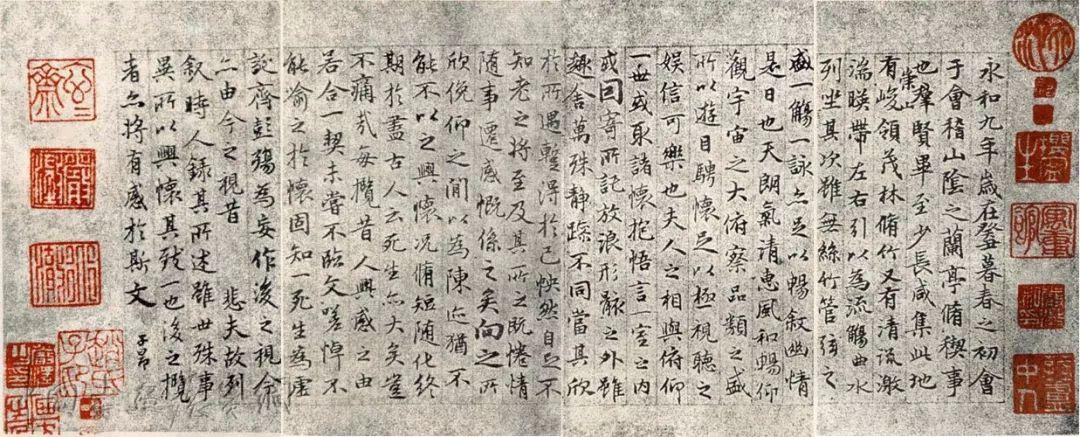 永和九年歲在癸丑暮春之初會
于會稽山陰之蘭亭脩稧事
也羣賢畢至少長咸集此地
有崇山峻領茂林脩竹又有清流激
湍暎帶左右引以為流觴曲水
列坐其次雖無絲竹管弦之
盛一觴一詠亦足以暢叙幽情
是日也天朗氣清惠風和暢仰
觀宇宙之大俯察品類之盛
所以遊目騁懷足以極視聽之
娛信可樂也夫人之相與俯仰
一世或取諸懷抱悟言一室之內
或因寄所託放浪形骸之外雖
趣舍萬殊静躁不同當其欣
於所遇暫得於己怏然自足不
知老之將至及其所之既惓情
隨事遷感慨係之矣向之所
欣俛仰之間以為陳迹猶不
能不以之興懷况脩短隨化終
期於盡古人云死生亦大矣豈
不痛哉每攬昔人興感之由
若合一契未嘗不臨文嗟悼不
能喻之於懷固知一死生為虛
誕齊彭殤為妄作後之視今
亦由今之視昔 悲夫故列
叙時人錄其所述雖世殊事
異所以興懷其致一也後之攬
者亦將有感於斯文
子昂
趙氏子昂